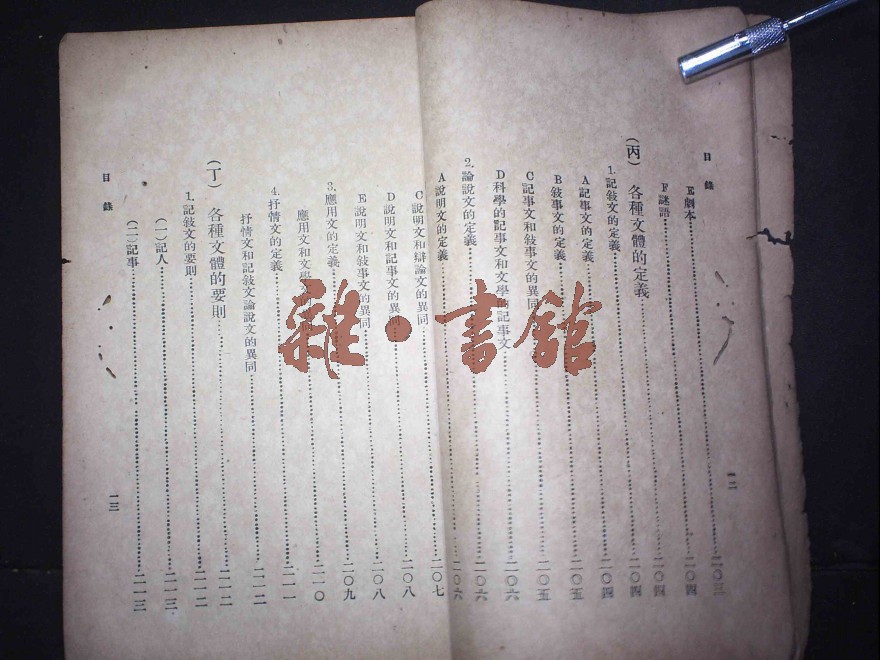 目錄 一二
E劇本……二〇三
F謎語……二〇四
(丙) 各種文體的定義……二〇四
1.記敍文的定義……二〇四
A記事文的定義……二〇四
B敍事文的定義……二〇五
C記事文和敍事文的異同……二〇五
D科學的記事文和文學的記事文……二〇六
2.論說文的定義……二〇六
A說明文的定義……二〇六
C說明文和辯論文的異同……二〇七
D說明文和記事文的異同……二〇八
E說明文和敍事文的異同……二〇八
3.應用文的定義……二〇九
應用文和文學 同……二一〇
4.抒情文的定義……二一一
抒情文和記敍文論說文的異同……二一二
(丁) 各種文體的要則……二一二
1.記敍文的要則……二一二
(一)記人……二一三
(二)記事……二一三
目錄 一三
雜·書館